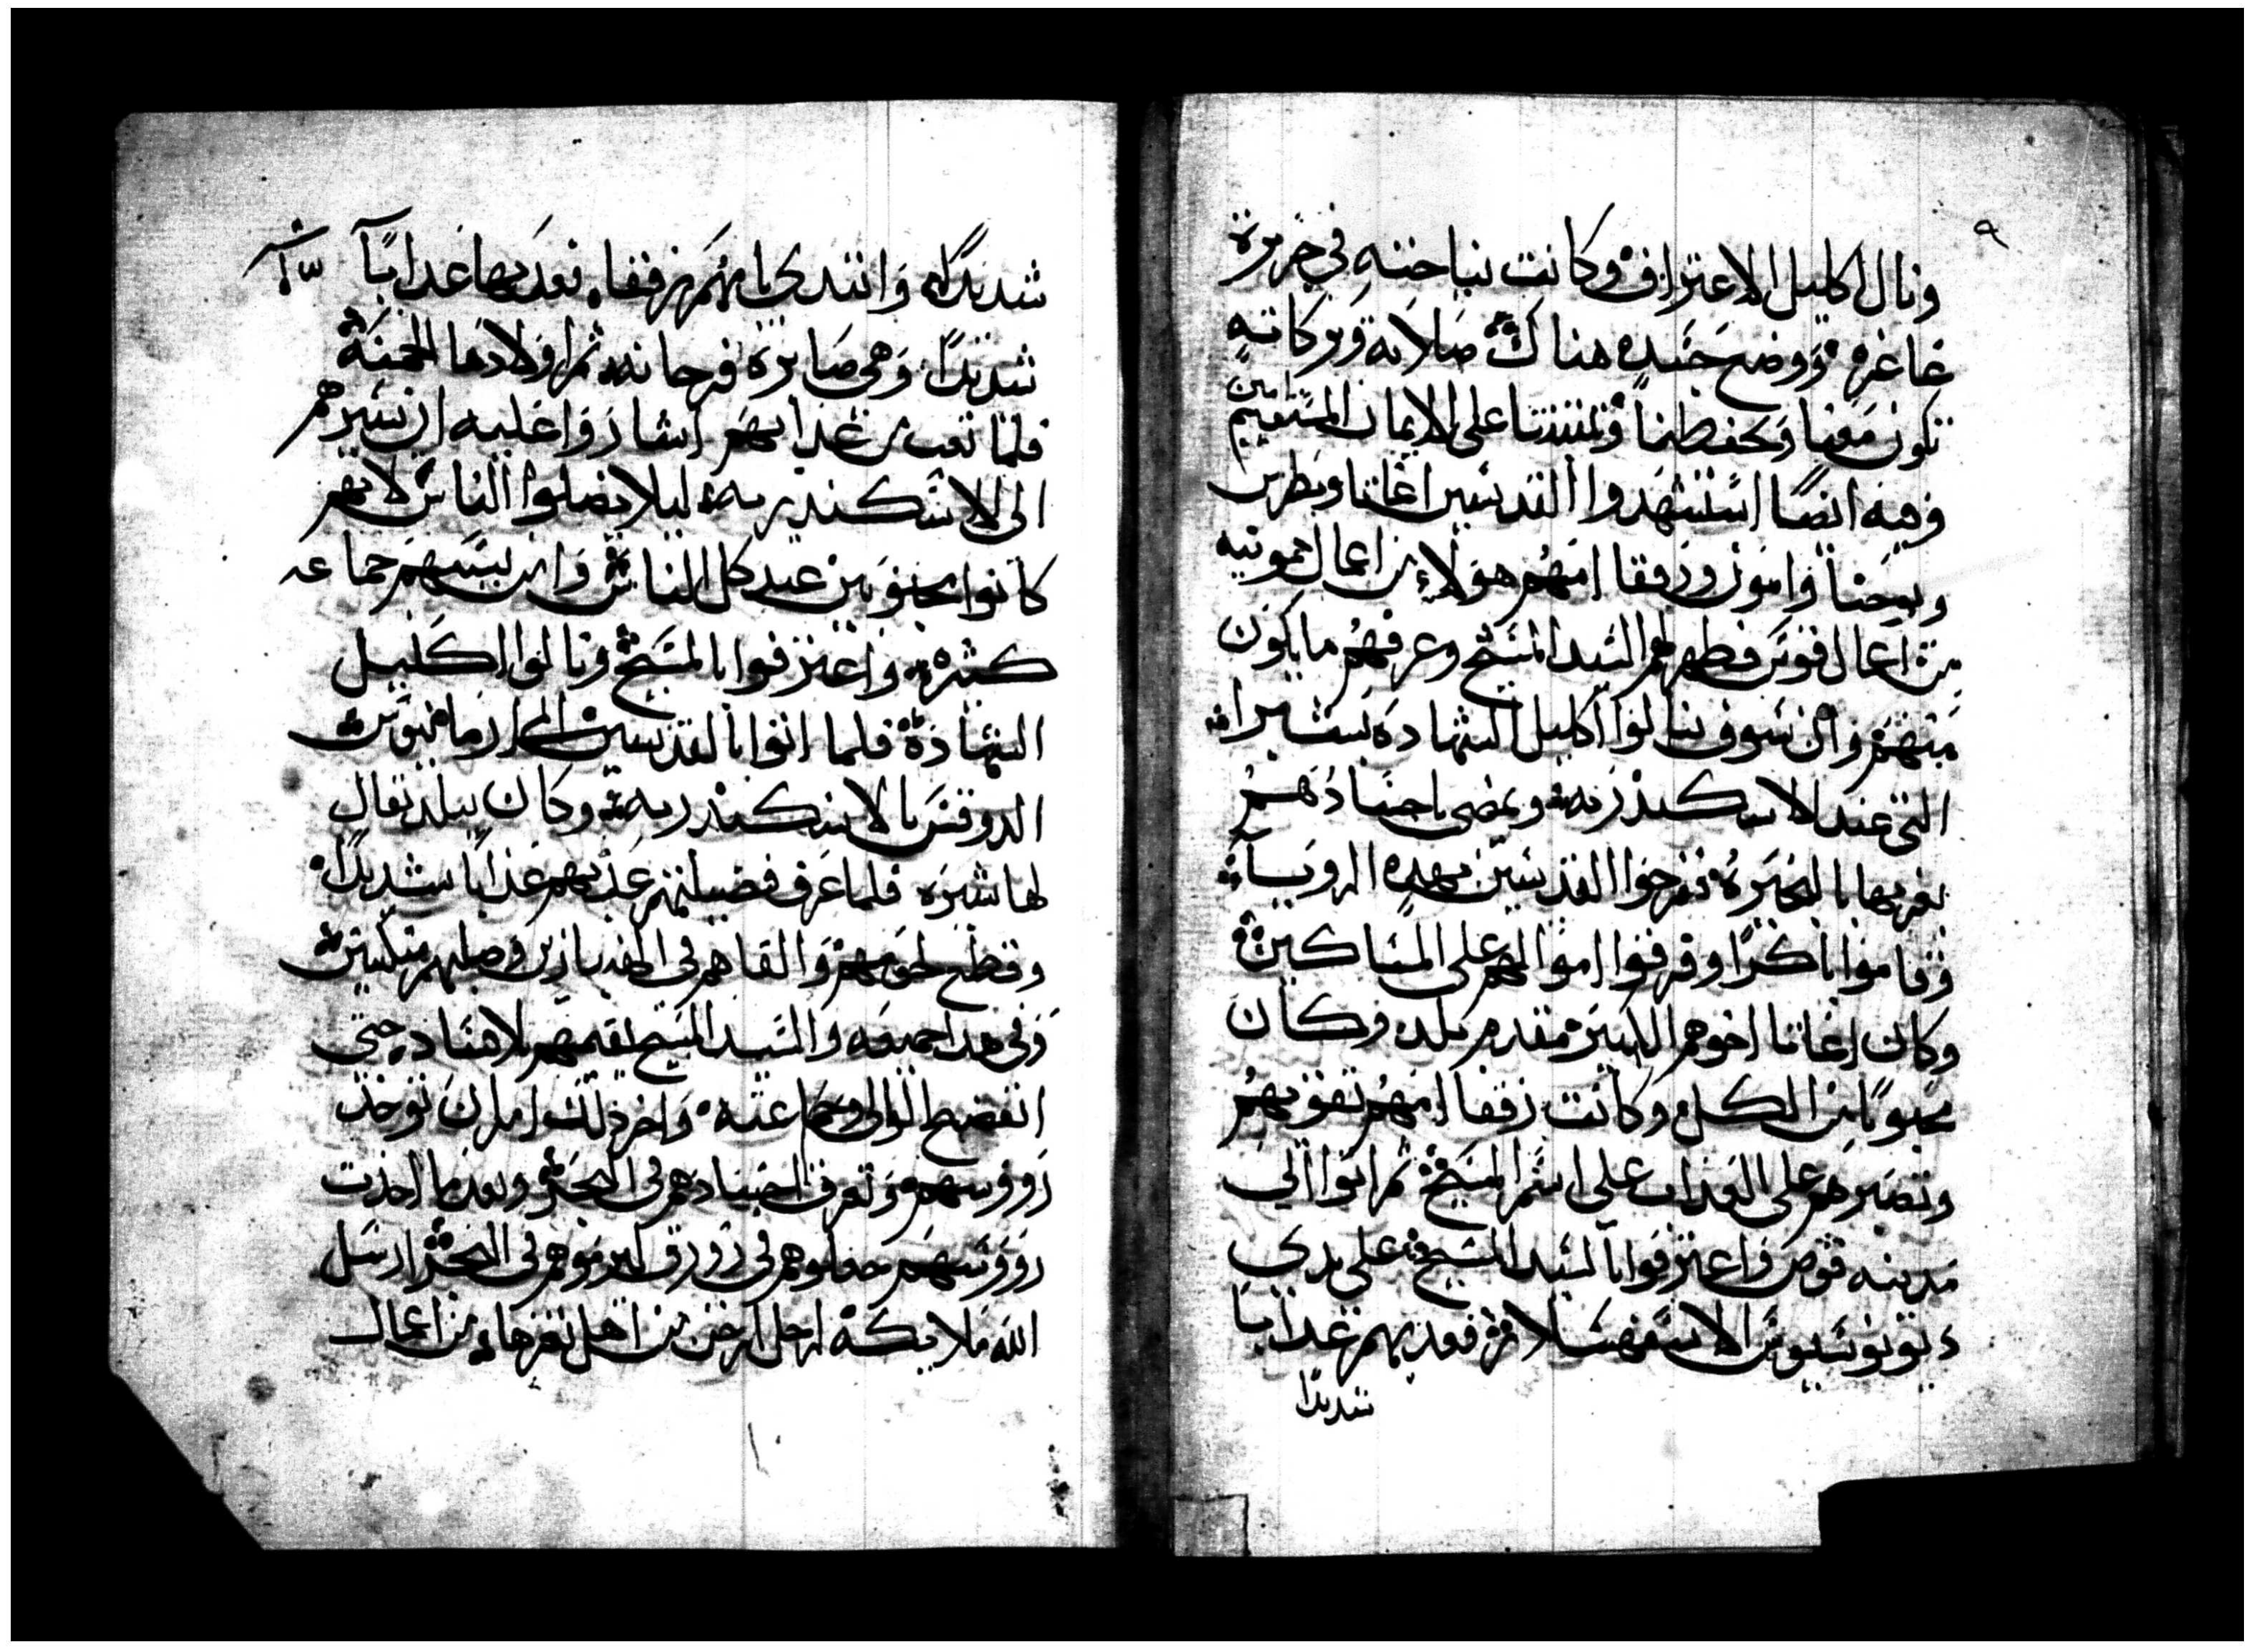 ٩
ونال اكليل الاعتراف وكانت نياحته في جزيرة
غاغره ووضع جسده هناك صلاته وبركاته
تكون معنا وتحفظنا وتثبتنا على الايمان المستقيم امين
وفيه ايضا استشهدوا القديسين اغاتا وبطرس
ويوحنا وامون ورفقا امهم هولاء من اعمال
من اعمال قوص فظهر لهم السيد المسيح وعرفهم ما يكون
منهم وان سوف ينالوا اكليل الشهاده بشبرا
التي عند الاسكندريه ويمضى باجسادهم
نقرها بالبحيره ففرحوا القديسين بهذه الرويا
وقاموا باكرا وفرقوا اموالهم على المساكين
وكان اغاتا اخوهم الكبير مقدم بلده وكان
محبوبا من الكل وكانت رفقا امهم تقويهم
وتصبرهم على العذاب على اسم المسيح ثم اتوا الى
مدينه قوص واعترفوا بالسيد المسيح على يدي
ديونوسيوس الاسفهسلار فعذبهم عذابا
شديدا
شديدا وابتدى بامهم رفقا فعذبها عذابا
شديدا وهي صابره فرحانه ثم اولادها الخمسة
فلما تعب من عذابهم اشاروا عليه ان يسيرهم
الى الاسكندريه ليلا يضلوا الناس لانهم
كانوا محبوبين عند كل الناس وان بسببهم جماعه
كثيره واعترفوا بالمسيح ونالوا اكليل
الشهادة فلما اتوا بالقديسين الى ارمانيوس
الدوقس بالاسكندريه وكان ببلد تقال
لها شبره فلما عرف قضيتهم عذبهم عذابا شديدا
وقطع لحومهم والقاهم في الهنبازين وصلبهم منكسين
وفي هذا جميعه والسيد المسيح يقيمهم بلا فساد حتى
انفضح الوالي وجماعته واخر ذلك امر ان توخذ
رووسهم وتغرق اجسادهم في البحر وبعد ما اخذت
رووسهم جعلوهم في زورق ليرموهم في البحر ارسل
الله ملايكة لرجل ارخن من اهل نقرها من اعمال